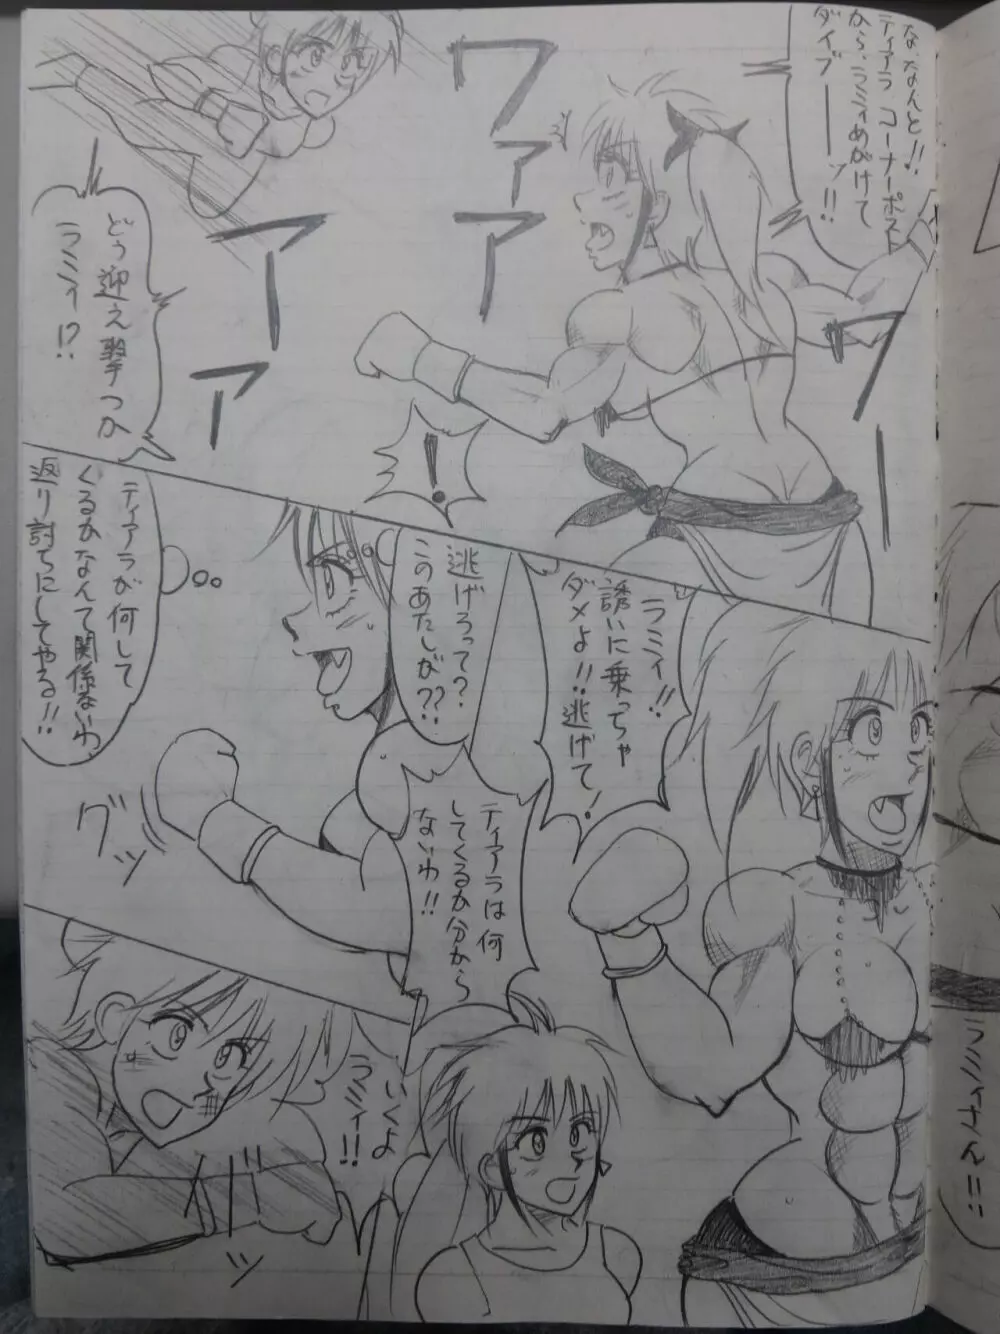 な、なんと!!
ティアラ コーナーポスト
から、ラミィめがけて
ダイブーーッ!!
ワァアアァアァワー
どう迎え撃つか
ラミィ!?
!
ラミィ!!
誘いに乗っちゃ
ダメよ!!逃げて!
逃げろって?
このあたしが??
ティアラは何
してくるか分から
ないわ!!
ティアラが何して
くるかなんて関係ないわ
返り討ちにしてやる!!
グッ
いくよ
ラミィ!!
バッ
ラミィさん!!